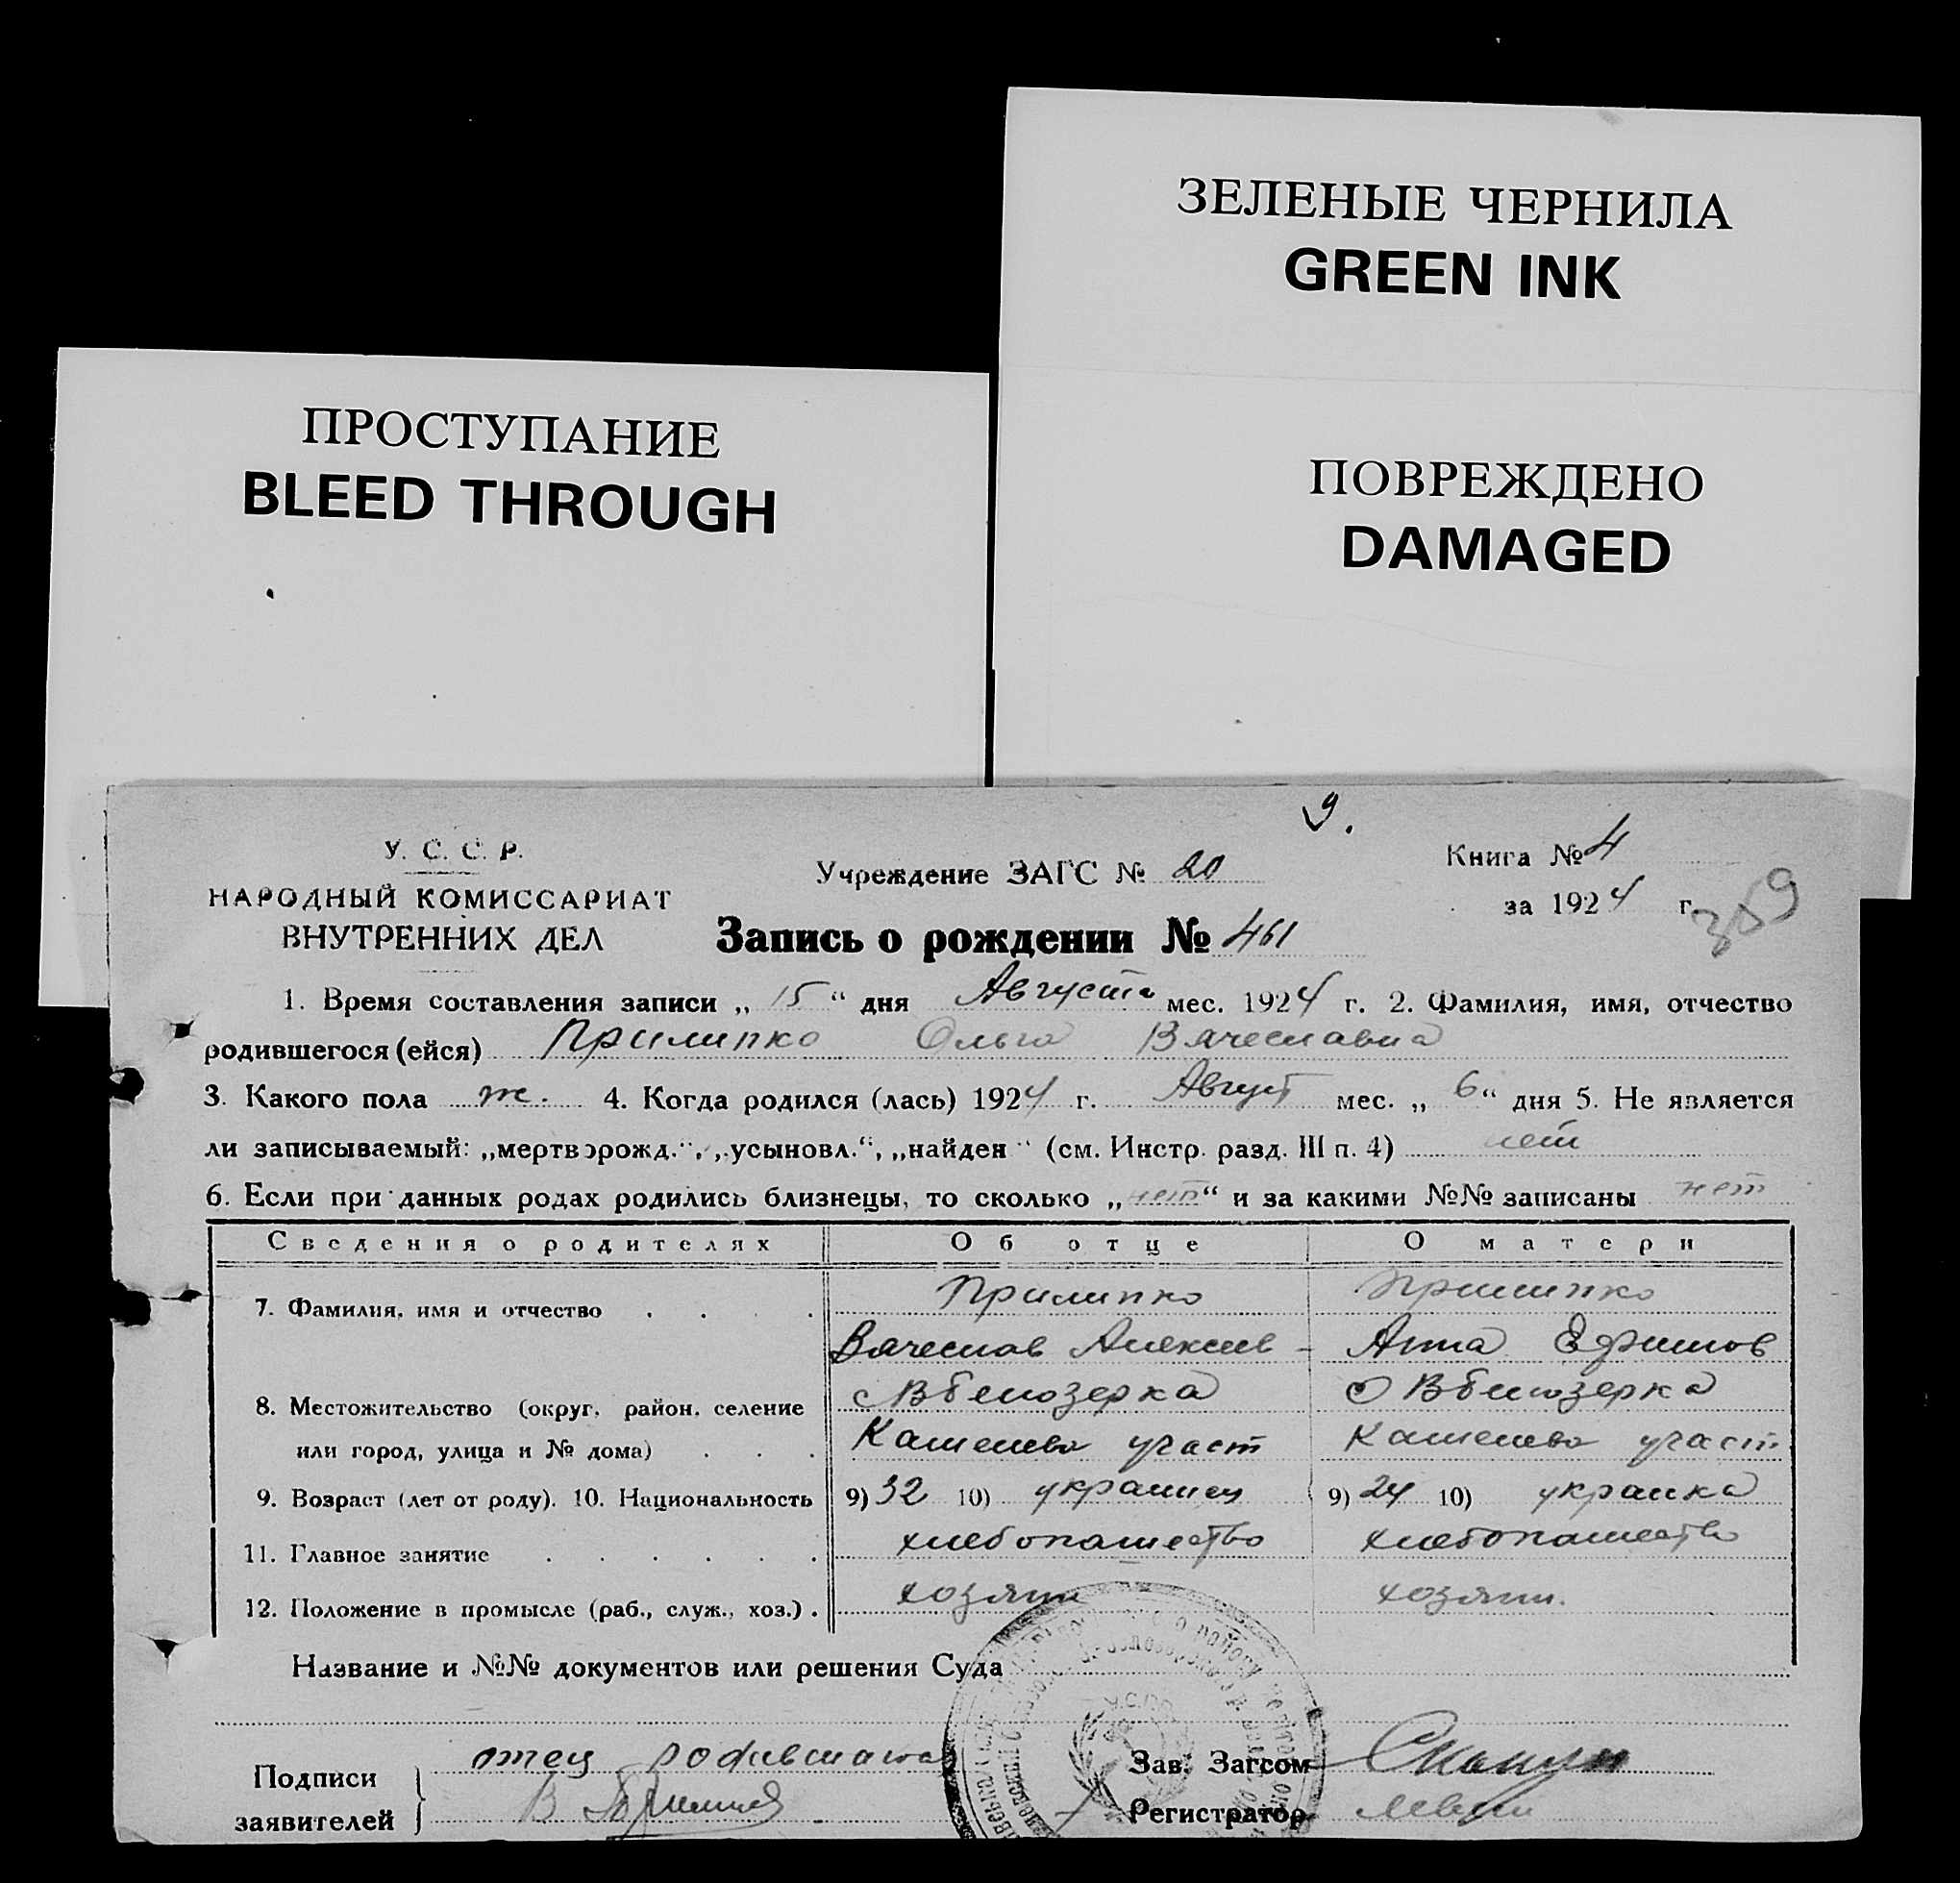 ЗЕЛЕНЫЕ ЧЕРНИЛА
GREEN INK
ПРОСТУПАНИЕ
BLEED THROUGH
ПОВРЕЖДЕНО
DAMAGED
9.
У. С. С. Р.
НАРОДНЫЙ КОМИССАРИАТ
ВНУТРЕННИХ ДЕЛ
Учреждение ЗАГС № 20
Книга № 4
за 1924 г.
359
Запись о рождении № 461
1. Время составления записи „ 15 “ дня Августа мес. 1924 г. 2. Фамилия, имя, отчество
родившегося (ейся) Прилипко Ольга Вячеславна
3. Какого пола ж. 4. Когда родился (лась) 1924 г. Август мес. „ 6 “ дня 5. Не является
ли записываемый: „мертворожд.“, „усыновл.“, „найден“ (см. Инстр. разд. III п. 4) нет
6. Если при данных родах родились близнецы, то сколько „нет“ и за какими №№ записаны нет
Сведения о родителях Об отце О матери
7. Фамилия, имя и отчество . . . . Прилипко Прилипко
Вячеслав Алексеев Анна Ефимов
8. Местожительство (округ, район, селение С Вбелозерка С Вбелозерка
или город, улица и № дома) . . . участ участ
9. Возраст (лет от роду). 10. Национальность 9) 32 10) украинец 9) 24 10) украинка
11. Главное занятие . . . . . . хлебопашество хлебопашество
12. Положение в промысле (раб., служ., хоз.) . хозяин хозяин.
Название и №№ документов или решения Суда
Подписи
заявителей
отец
В
Зав. Загсом
Регистратор